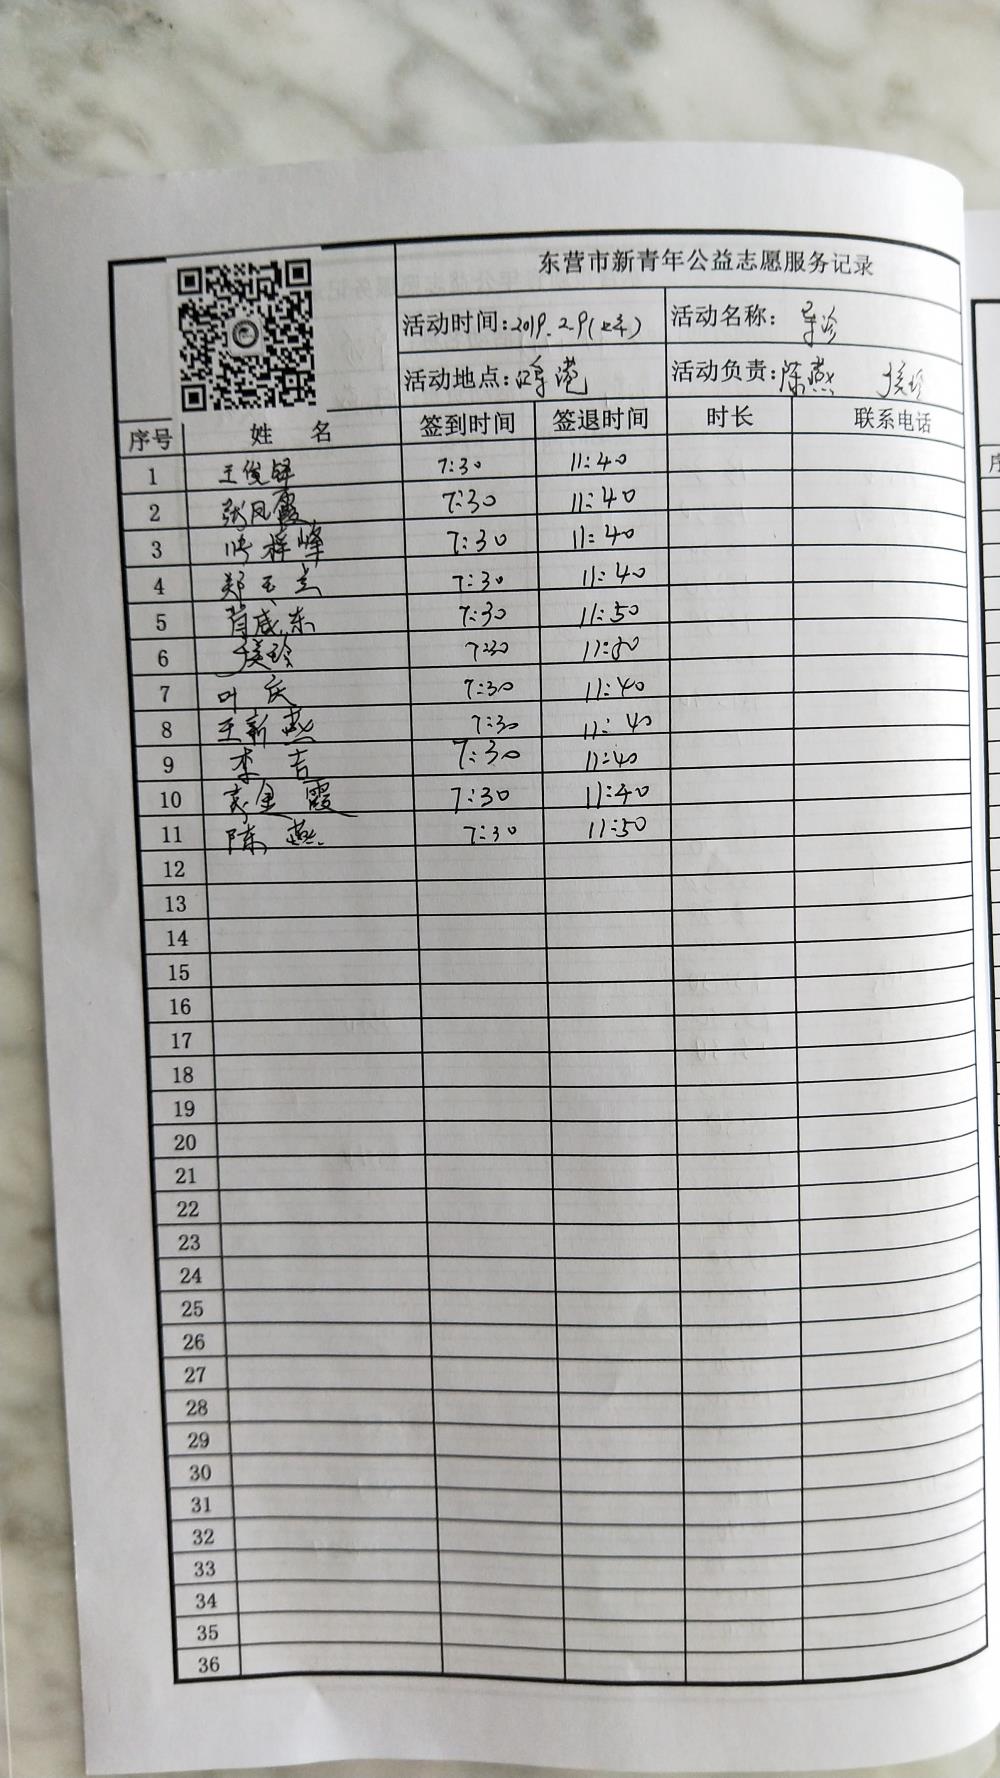 东营市新青年公益志愿服务记录
活动时间:2019.2.9(上午) 活动名称: 导诊
活动地点: 活动负责:陈燕 侯玲
序号 姓 名 签到时间 签退时间 时长 联系电话
1 王俊铎 7:30 11:40
2 张凤霞 7:30 11:40
3 祥峰 7:30 11:40
4 郑玉兰 7:30 11:40
5 肖威东 7:30 11:50
6 侯玲 7:30 11:50
7 叶庆 7:30 11:40
8 王新燕 7:30 11:40
9 李吉 7:30 11:40
10 金霞 7:30 11:40
11 陈燕 7:30 11:50
12
13
14
15
16
17
18
19
20
21
22
23
24
25
26
27
28
29
30
31
32
33
34
35
36
序